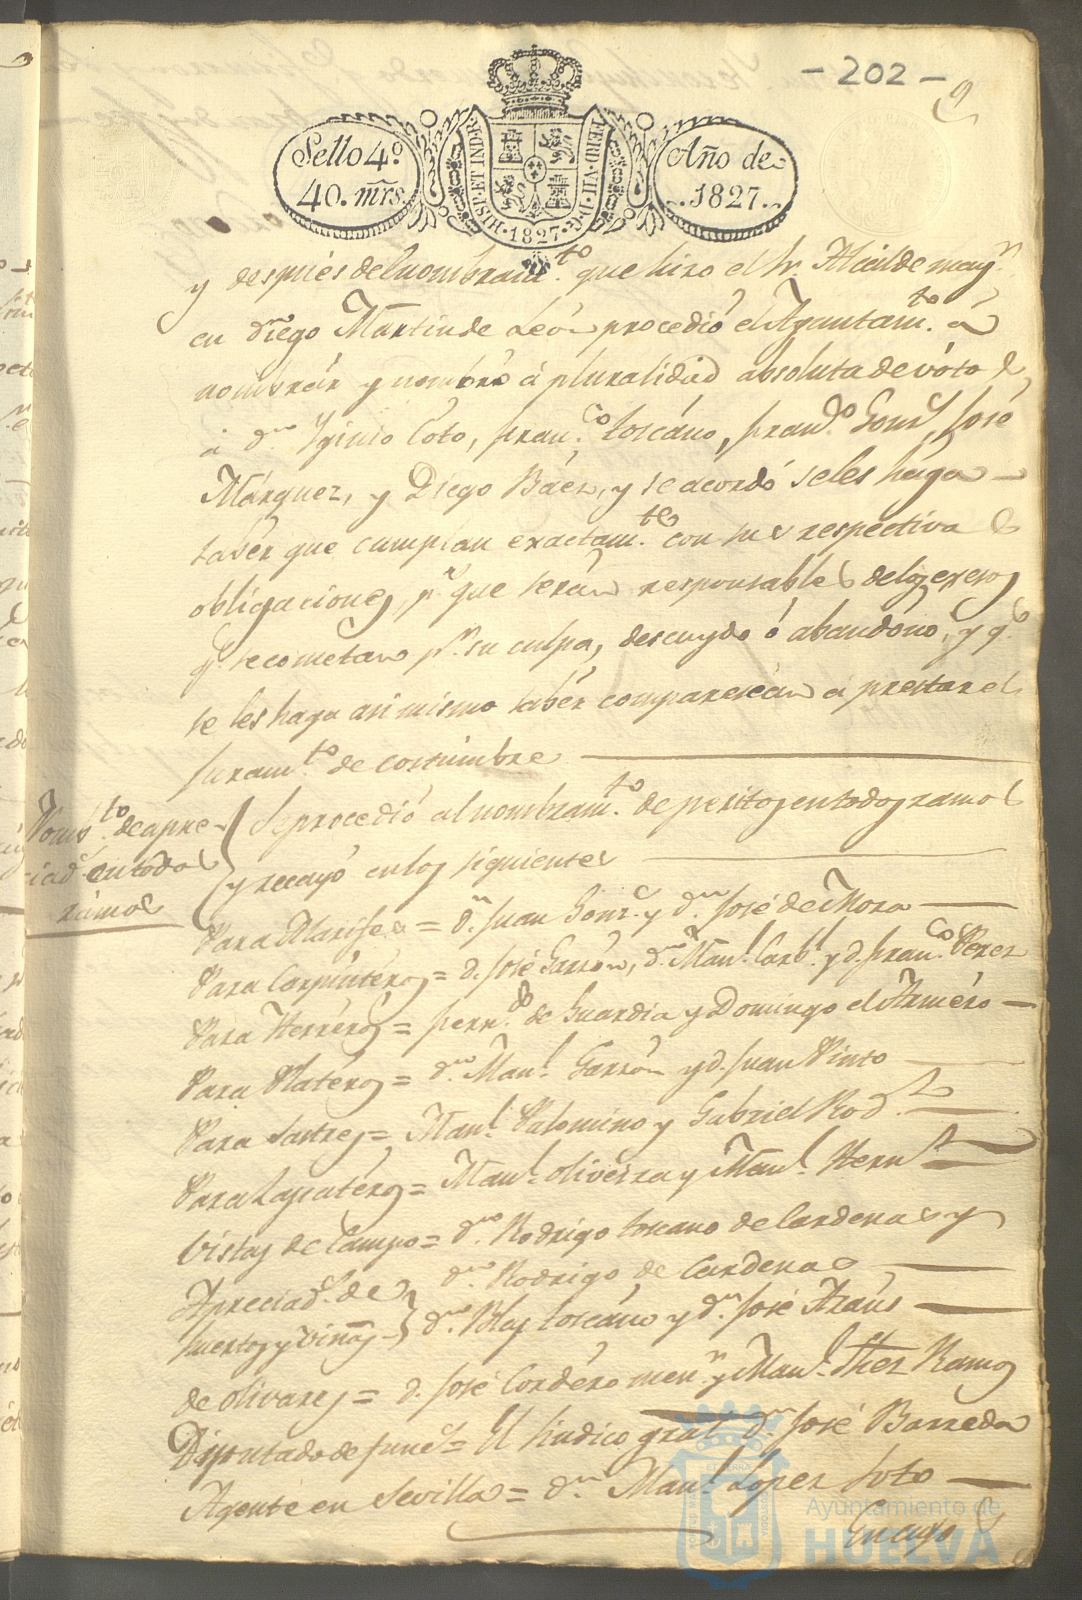 - 202 -
9
Sello 4º
40. mrs.
HISP. ET IND. R.
FERD. VII. D. G.
1827
Año de
1827.
y después del nombram.to que hizo el Sr. Alcalde may.r
en Diego Martin de Leon procedió el Ayuntam.to á
nombrár y nombró á pluralidad absoluta de vótos
á dn Yginio Coto, fran.co toscáno, fran.do Gonz José
Márquez, y Diego Báez, y se acordó se les hága
sabér que cumplan exactam.te con sus respectivas
obligaciones, pr que serán responsables de los exesos
q.e se cometan pr su culpa, descuydo ó abandóno, y q.e
se les haga asi mismo sabér comparescán á prestar el
juram.to de costúmbre
Nomb.to de apre-
ciad.s en todos
rámos
Se procedió al nombram.to de peritos en todos rámos
y recayó en los siguientes
Para Alarifes = dn Juan Gonz. y dn José de Mora
Para Carpintéros = d. José Garzón, dn Man.l Carb.l y d. fran.co Perez
Para Herréros = fern.do de Guardia y Domingo el Arméro
Para Platéros = dn Man.l Garzón y d. Juan Pinto
Para Sastres = Man.l Palomino y Gabriel Rod.z
Para Zapatéros = Man.l Oliveira y Man.l Hern.z
Vistas de Campo = dn Rodrigo toscano de Cardenas y
dn Rodrigo de Cardenas
Apreciad.s de
huertos y viñas } dn Blas toscáno y dn José Aráus
de olivares = d. José Cordéro men.r y Man.l Ramos
Diputado de func.s = El Sindico gral dn José Barreda
Agente en Sevilla = dn Man.l Lopez Soto
En cuyo
Ayuntamiento de
HUELVA